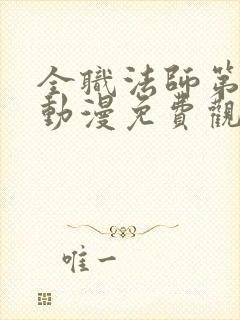 全職法師第
動漫免費觀
唯一